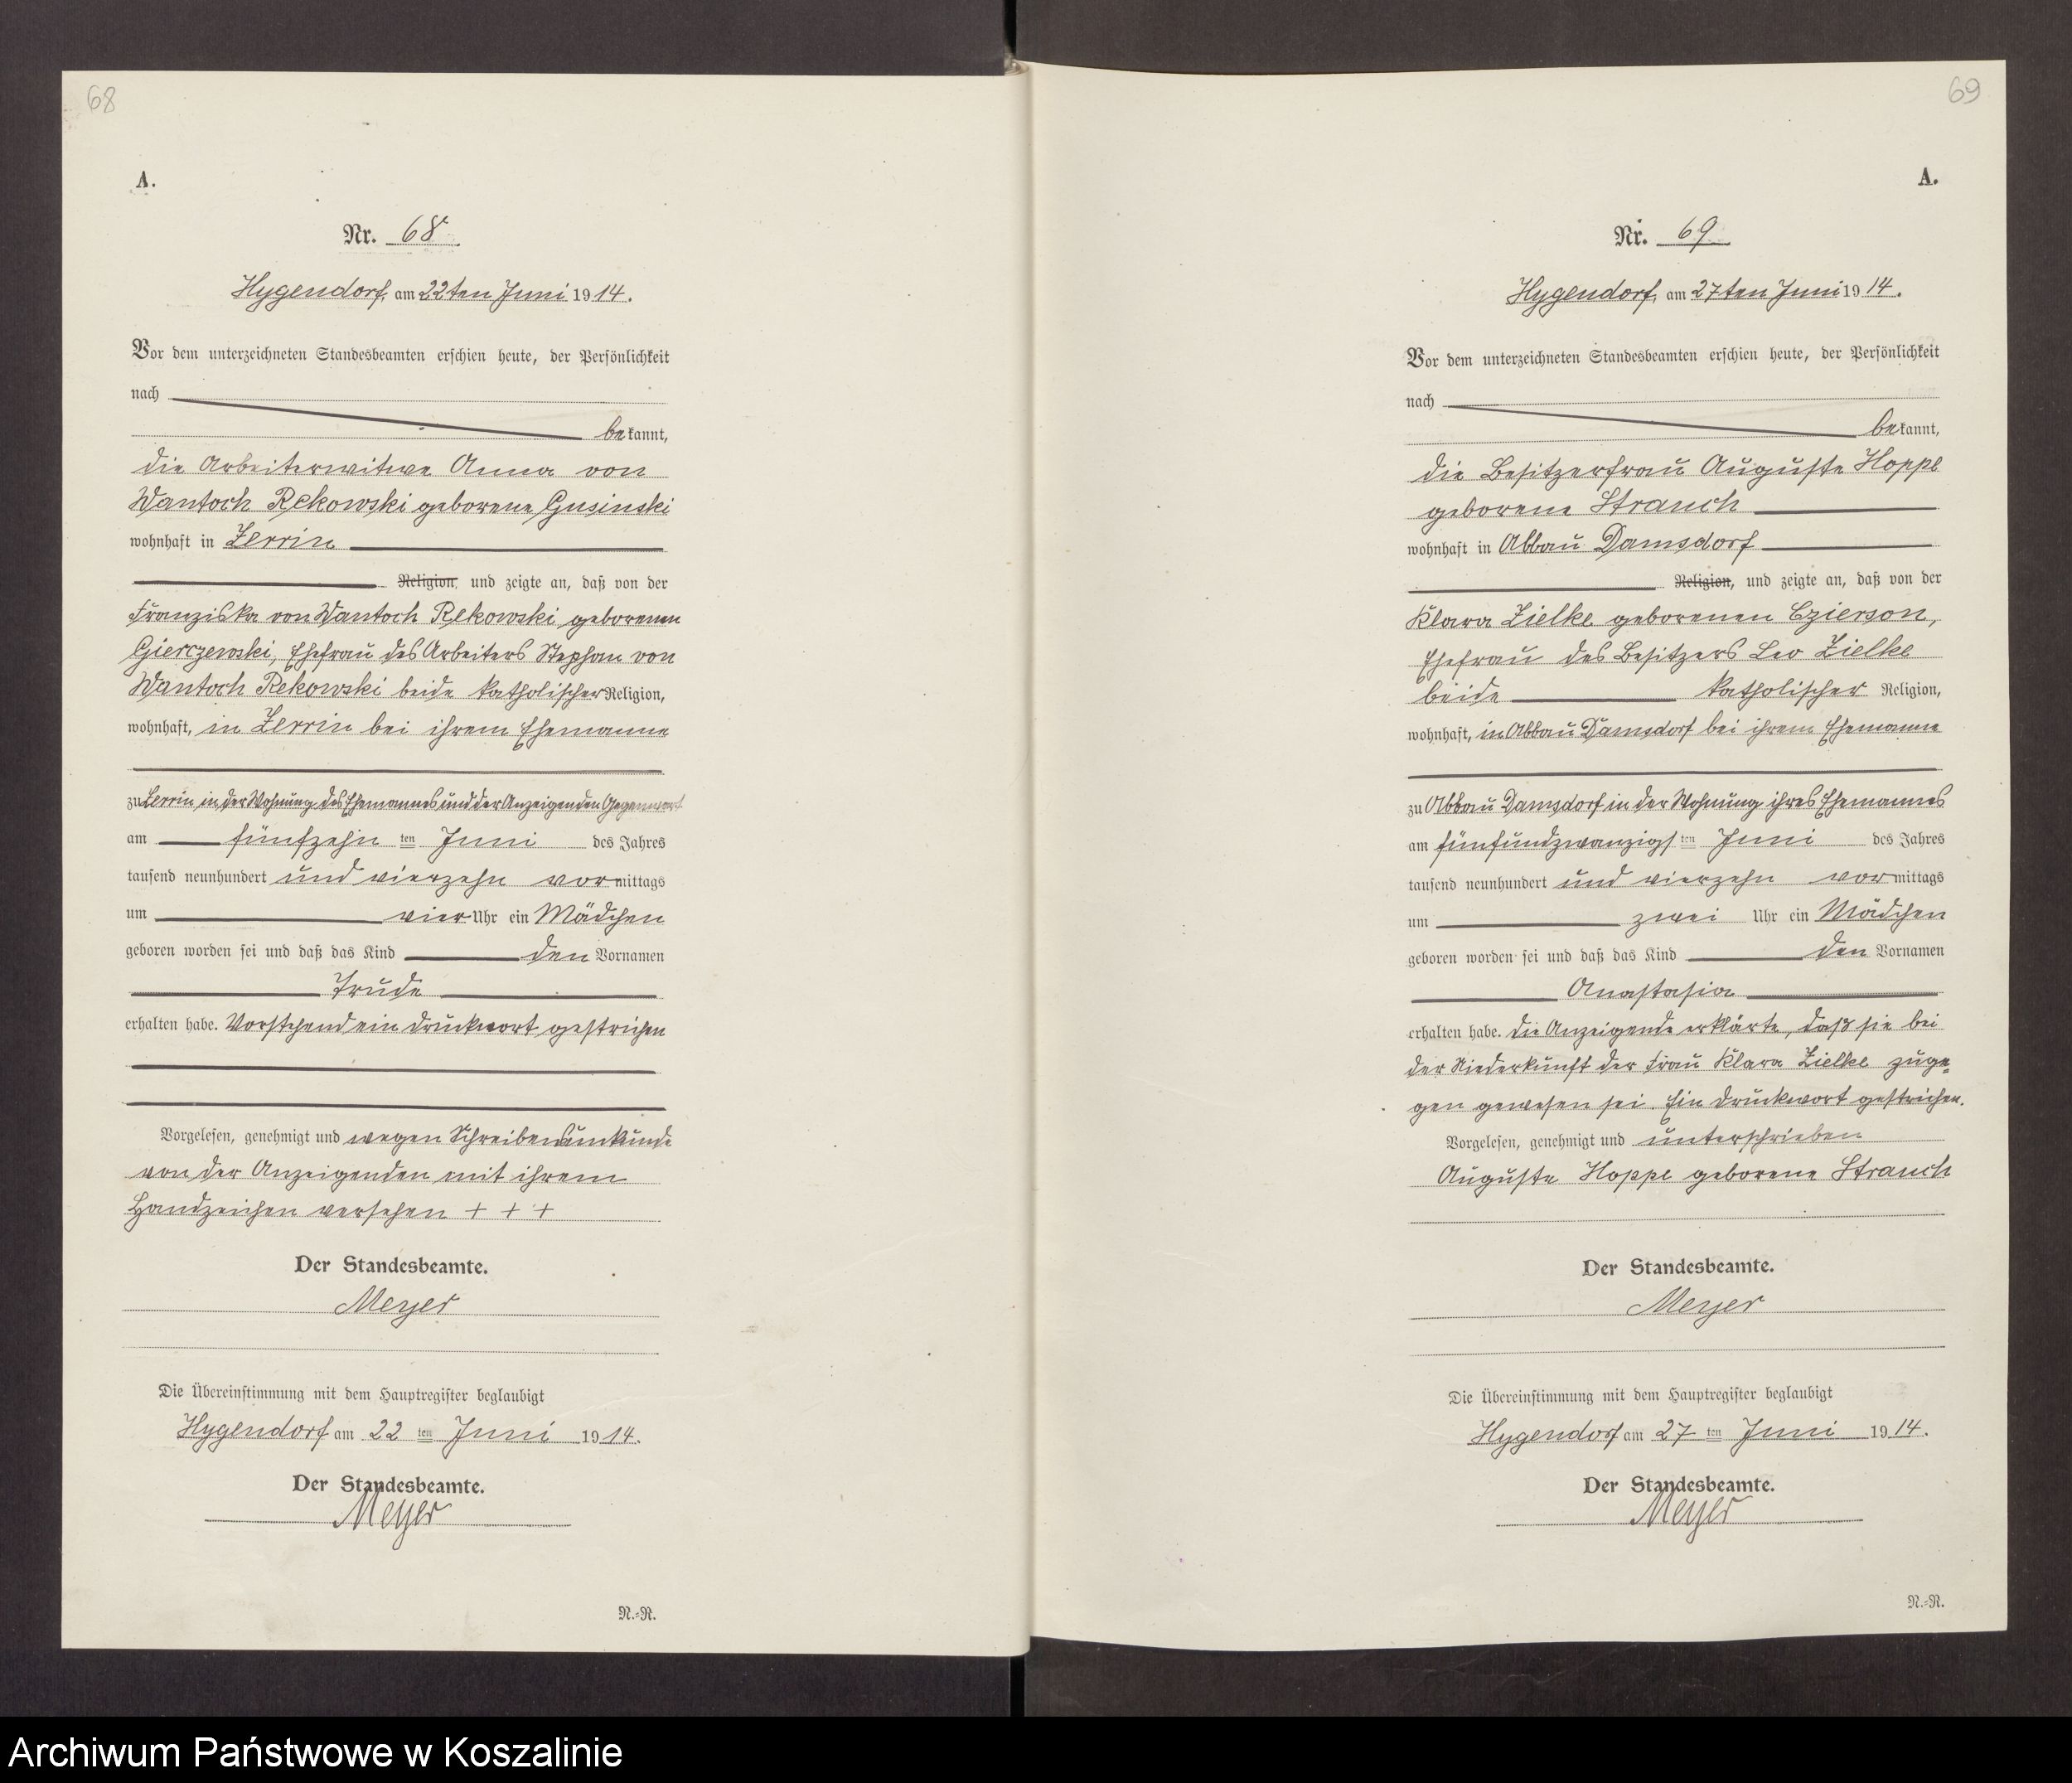 68
A.
Nr. 68
Hygendorf, am 22ten Juni 1914.
Vor dem unterzeichneten Standesbeamten erschien heute, der Persönlichkeit
nach
bekannt,
die Arbeiterwitwe Anna von
Wantoch Rekowski geborene Gusinski
wohnhaft in Zerrin
Religion, und zeigte an, daß von der
Franziska von Wantoch Rekowski geborenen
Gierczewski, Ehefrau des Arbeiters Stephan von
Wantoch Rekowski beide katholischer Religion,
wohnhaft, in Zerrin bei ihrem Ehemanne
zu Zerrin in der Wohnung des Ehemannes und der Anzeigenden Gegenwart
am fünfzehn ten Juni des Jahres
tausend neunhundert und vierzehn vormittags
um vier Uhr ein Mädchen
geboren worden sei und daß das Kind den Vornamen
Trude
erhalten habe. Vorstehend ein Druckwort gestrichen
Vorgelesen, genehmigt und wegen Schreibensunkunde
von der Anzeigenden mit ihrem
Handzeichen versehen + + +
Der Standesbeamte.
Meyer
Die Übereinstimmung mit dem Hauptregister beglaubigt
Hygendorf am 22 ten Juni 1914.
Der Standesbeamte.
Meyer
N.=R.
69
A.
Nr. 69
Hygendorf, am 27ten Juni 1914.
Vor dem unterzeichneten Standesbeamten erschien heute, der Persönlichkeit
nach
bekannt,
die Besitzerfrau Auguste Hoppe
geborene Strauch
wohnhaft in Abbau Damsdorf
Religion, und zeigte an, daß von der
Klara Zielke geborenen Czierson,
Ehefrau des Besitzers Leo Zielke
beide katholischer Religion,
wohnhaft, in Abbau Damsdorf bei ihrem Ehemanne
zu Abbau Damsdorf in der Wohnung ihres Ehemannes
am fünfundzwanzigsten Juni des Jahres
tausend neunhundert und vierzehn vormittags
um zwei Uhr ein Mädchen
geboren worden sei und daß das Kind den Vornamen
Anastasia
erhalten habe. Die Anzeigende erklärte, daß sie bei
der Niederkunft der Frau Klara Zielke zuge=
gen gewesen sei. Ein Druckwort gestrichen.
Vorgelesen, genehmigt und unterschrieben
Auguste Hoppe geborene Strauch
Der Standesbeamte.
Meyer
Die Übereinstimmung mit dem Hauptregister beglaubigt
Hygendorf am 27 ten Juni 1914.
Der Standesbeamte.
Meyer
N.=R.
Archiwum Państwowe w Koszalinie